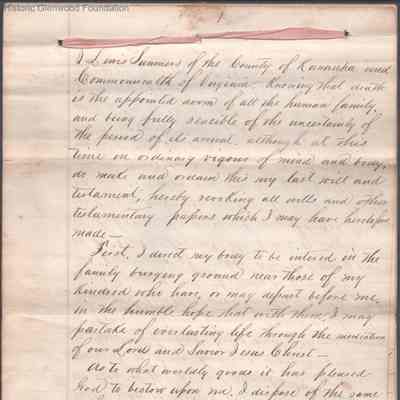 Historic Glenwood Foundation
1
I Lewis Summers of the County of Kanawha and
Commonwealth of Virginia - Knowing that death
is the appointed doom of all the human family,
and being fully sensible of the uncertainty of
the period of its arrival, although at this
time in ordinary vigour of mind and body,
do make and ordain this my last will and
testament, hereby revoking all wills and other
testamentary papers which I may have heretofore
made -
First, I direct my body to be interred in the
family burying ground near those of my
kindred who have, or may depart before me,
in the humble hope that with them I may
partake of everlasting life through the mediation
of our Lord and Savior Jesus Christ -
As to what worldly goods it has pleased
God to bestow upon me, I dispose of the same